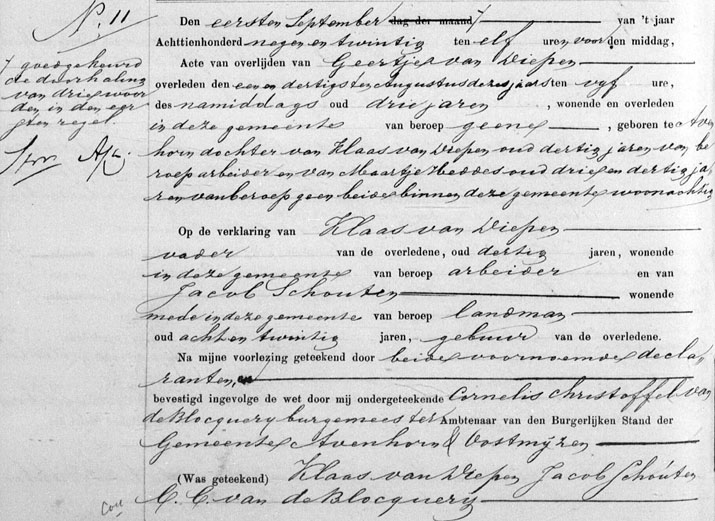 N. 11
Den eersten September dag der maand / van 't jaar
Achttienhonderd negen en twintig ten elf uren voor den middag,
/ goedgekeurd
de doorhaling
van drie woor
den in den eer
sten regel.
Acte van overlijden van Geertje van Diepen
overleden den een en dertigsten Augustus dezes jaars ten vyf ure,
des namiddags oud drie jaren , wonende en overleden
in deze gemeente van beroep geene , geboren te Aven
horn dochter van Klaas van Diepen oud dertig jaren van be
roep arbeider en van Maartje Heddes oud drie en dertig ja
ren van beroep geen beide binnen deze gemeente woonachtig
Op de verklaring van Klaas van Diepen
vader van de overledene, oud dertig jaren, wonende
in deze gemeente van beroep arbeider en van
Jacob Schouten wonende
mede in deze gemeente van beroep landman
oud acht en twintig jaren, gebuur van de overledene.
Na mijne voorlezing geteekend door beide voornoemde decla
ranten, en
bevestigd ingevolge de wet door mij ondergeteekende Cornelis Christoffel van
de Blocquery burgemeester Ambtenaar van den Burgerlijken Stand der
Gemeente Avenhorn & Oostmyzen
(Was geteekend) Klaas van Diepen Jacob Schouten
C. C. van de Blocquery